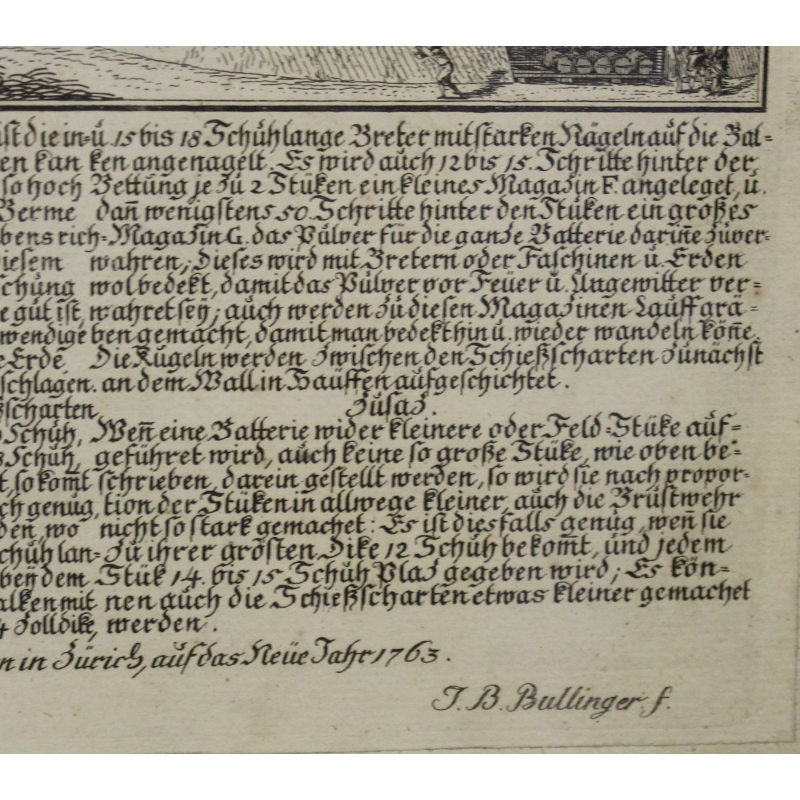 ist die in=
en kan
so hoch
Berme
bens
iesem
chung
e gut ist,
wendige
e Erde
schlagen.
ßscharten
Schuh,
Schuh,
t, so kom̃t
ch genug,
den wo
chuh lan=
bey dem
alken mit
4 Zoll dik,
u. 15 bis 18 Schuh lange Breter mit starken Nägeln auf die Bal=
ken angenagelt. Es wird auch 12 bis 15. Schritte hinter der
Bettung je zu 2 Stüken ein kleines Magazin F. angeleget, u.
dañ wenigstens 50. Schritte hinter den Stüken ein großes
rich=Magazin G. das Pulver für die ganze Batterie dariñe zuver=
wahren, Dieses wird mit Bretern oder Faschinen u. Erden
wol bedekt, damit das Pulver vor Feuer u. Ungewitter ver=
wahret sey; auch werden zu diesen Magazinen Lauffgrä=
ben gemacht, damit man bedekt hin u. wieder wandeln köñe.
Die Kugeln werden zwischen den Schießscharten zunächst
an dem Wall in Hauffen aufgeschichtet.
Zusaz.
Weñ eine Batterie wider kleinere oder Feld=Stüke auf=
geführet wird, auch keine so große Stüke, wie oben be=
schrieben, darein gestellt werden, so wird sie nach propor=
tion der Stüken in allwege kleiner, auch die Brustwehr
nicht so stark gemachet: Es ist diesfalls genug, weñ sie
zu ihrer grösten Dike 12 Schuh bekom̃t, und jedem
Stük 14. bis 15 Schuh Plaz gegeben wird; Es kön=
nen auch die Schießscharten etwas kleiner gemachet
werden.
n in Zürich, auf das Neue Jahr 1763.
J. B. Bullinger. f.